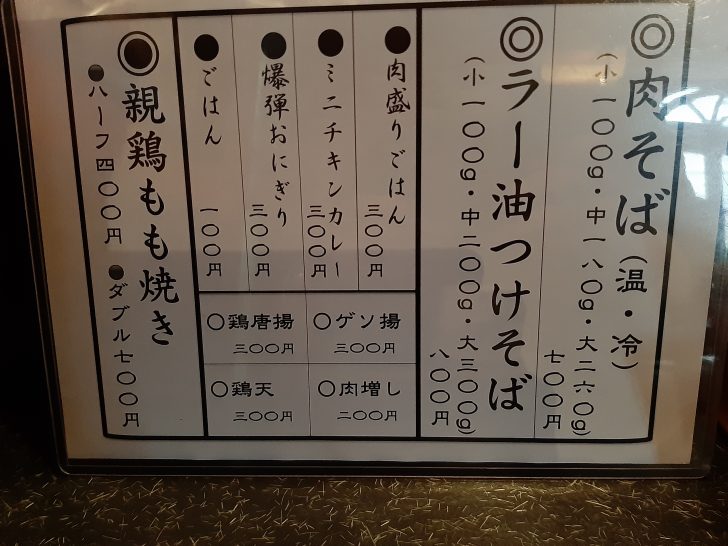 ◎肉そば(温・冷)
(小一〇〇g・中一八〇g・大二六〇g)
七〇〇円
◎ラー油つけそば
(小一〇〇g・中二〇〇g・大三〇〇g)
八〇〇円
●肉盛りごはん
三〇〇円
●ミニチキンカレー
三〇〇円
●爆弾おにぎり
三〇〇円
●ごはん
一〇〇円
○ゲソ揚
三〇〇円
○鶏唐揚
三〇〇円
○肉増し
二〇〇円
○鶏天
三〇〇円
◉親鶏もも焼き
●ハーフ四〇〇円 ●ダブル七〇〇円